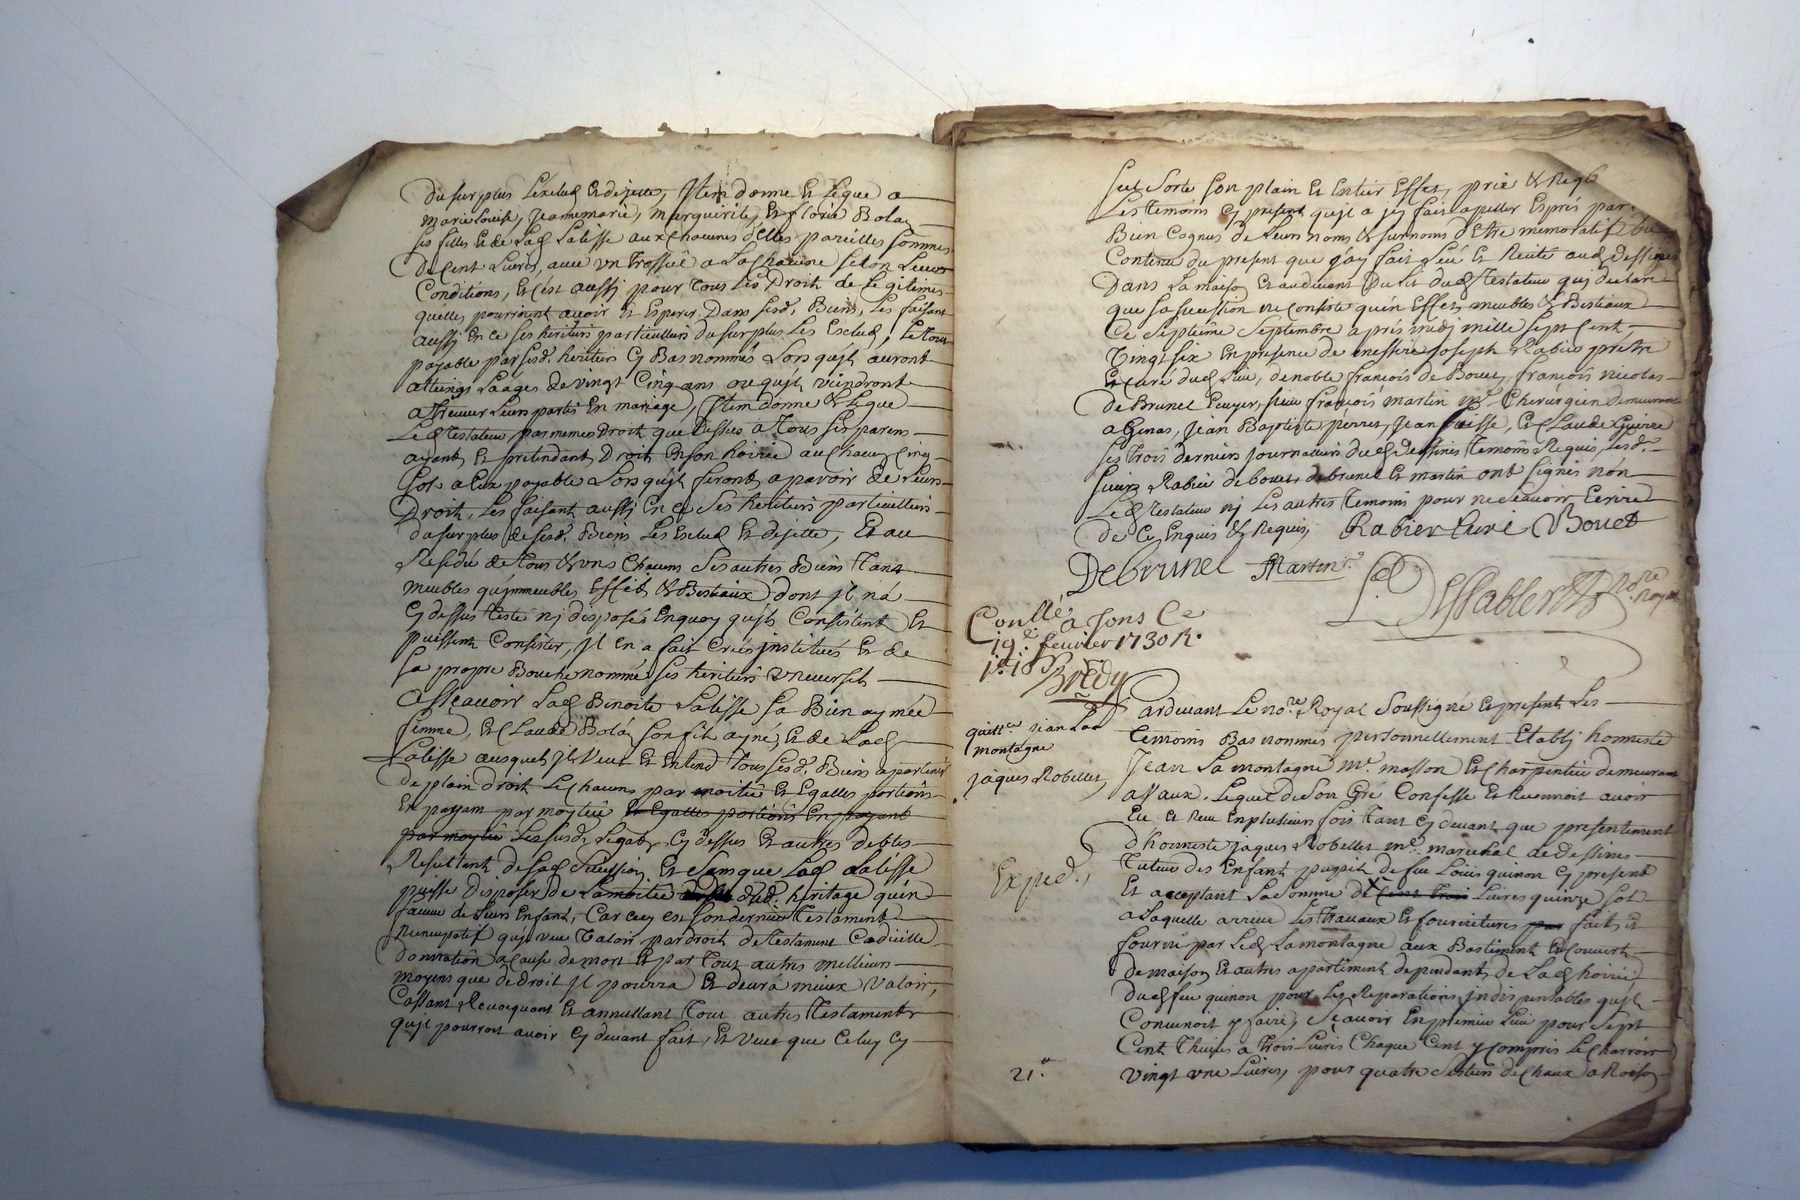 du surplus Lexclud Et dejette, Item donne Et Legue a
Marie Louise, Jeannemarie, Marguerite, Et florie Bola
ses filles Et de Lad Lalisse aux Chacunes d'Elles pareilles sommes
de Cent Livres, avec un trossel a La Chacune selon Leurs
Conditions, Et c'est aussy pour tous Les Droit de Legitimes
quelles pourroint avoir Et Esperer Dans sesd. Biens, Les faisant
aussy En ce ses heritiers particulliers du surplus Les Exclud, Le tout
payable par sesd. heritiers Cy Bas nommés Lors qu'ils auront
atteings Laages de vingt Cinq ans ou qu'ils viendront
a treuver Leurs partis En mariage, Item donne & Legue
Led testateur par memes Droit que Dessus a Tous ses parens
ayants Et pretendants Droit En son hoirie au Chacun Cinq
sols a Eux payable Lors qu'ils feront aparoir de Leurs
Droit, Les faisant aussy En ce ses heritiers particulliers
du surplus de sesd. Biens Les Exclud Et dejette, Et au
Residu de tous & uns Chacuns ses autres Biens tant
meubles qu'immeubles Effets & Bestiaux dont il n'a
Cy dessus testé ny disposé En quoy qu'ils Consistent Et
puissent Consister, il En a fait Créés institués Et de
sa propre Bouche nommé ses heritiers universels
assavoir Lad Benoite Lalisse sa Bien aymée
femme, Et Claude Bola son fils ayné, Et de Lad
Lalisse ausquels il veut Et Entend tous sesd. Biens apartenir
de plain droit Le Chacuns par moitié Et Egalles portions
En payam par moytié Et Egalles portions En payant
par moytié Les susd. Legats Cy dessus Et autres debtes
Resultant de sad Succession Et sans que Lad Lalisse
puisse disposer de La moitié dud. heritage qu'en
faveur de Leurs Enfant, Car cecy est son dernier testament
Nuncupatif qu'il veut valoir par droit de testament Codicille
donnation a Cause de mort Et par tout autres meilleurs
moyens que de Droit il pourra Et devra mieux valoir,
Cassant Revocquant Et annullant tout autres testaments
qu'il pourroit avoir Cy devant fait, Et veut que Celuy Cy
seul Sorte son plain Et Entier Effet, prié & Requis
Les temoins Cy present qu'il a icy fait apeller Exprés par
Bien Cognus de Leurs noms & surnoms d'Estre memoratif du
Contenu du present que j'ay fait Leu Et Recité aud Dessines
Dans La maison Et au devant Du Lit dud testateur qui declare
que sa succession ne Consiste qu'en Effets meubles & Bestiaux
Ce Septieme Septembre apres midy mille sept Cent
Vingt six En presence de messire Joseph Rabier prestre
Et curé dud Lieu, de noble françois de Bouet, françois nicolas
de Brunel Ecuyer, sieur françois martin Me Chirurgien Demeurant
a Genas, Jean Baptiste perret, Jean Cuisse, Et Claude Guerre
Les trois derniers journaliers dud dessines temoins Requis, Lesd.
sieurs Rabier de bouet, debrunel Et martin ont signés non
Led testateur ny Les autres temoins pour ne scavoir Ecrire
de Ce Enquis & Requis, Rabier Curé Bouet
De brunel Martin
Dessablet Nore Royal
Conllé
a sons Ce
19e fevrier 1730 R.
Brédy
quittce Jean La
montagne
Jaques Robellet
Exped.
Pardevant Le nore Royal Soussigné Et present Les
temoins Bas nommés personnellement Etably honneste
Jean La montagne Me masson Et Charpentier demeurant
a Vaux, Lequel de Son Gré Confesse Et Reconnoit avoir
Eu Et Receu En plusieurs fois tant Cy devant que presentement
d'honneste Jaques Robellet Me marechal de Dessines
tuteur des Enfant pupils de feu Louis quinon Cy present
Et acceptant La somme de Cent Trois Livres quinze sols
a Laquelle arrive Les travaux Et fournitures par fait Et
fourni par Led Lamontagne aux Bastiment Et Couvert
de maison Et autres apartiment dependant de Lad hoirie
dud feu quinon pour Les Reparations indispensables qu'il
Convenoit y faire, Sçavoir En premier Lieu pour Sept
Cent Thuiles a trois Livres Chaque Cent y compris Le Charroir
21.#
vingt une Livres, pour quatre Sestiers de Chaux a